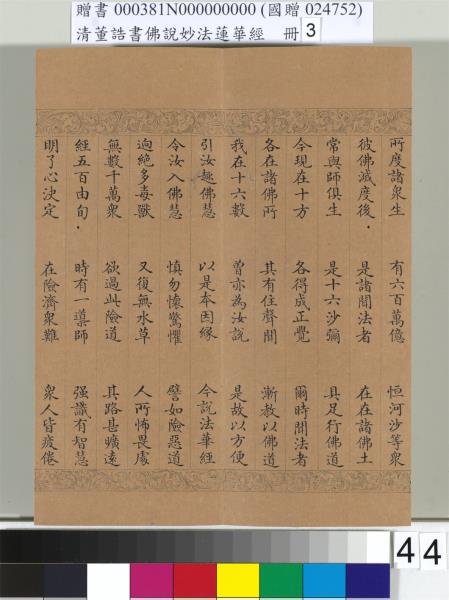 贈書 000381N000000000 (國贈 024752)
清董誥書佛說妙法蓮華經 冊 3
所度諸衆生 有六百萬億 恒河沙等衆
彼佛滅度後 是諸聞法者 在在諸佛土
常與師俱生 是十六沙彌 具足行佛道
今現在十方 各得成正覺 爾時聞法者
各在諸佛所 其有住聲聞 漸教以佛道
我在十六數 曾亦為汝說 是故以方便
引汝趣佛慧 以是本因緣 今說法華經
令汝入佛慧 慎勿懷驚懼 譬如險惡道
逈絕多毒獸 又復無水草 人所怖畏處
無數千萬衆 欲過此險道 其路甚曠遠
經五百由旬 時有一導師 强識有智慧
明了心決定 在險濟衆難 衆人皆疲倦
44